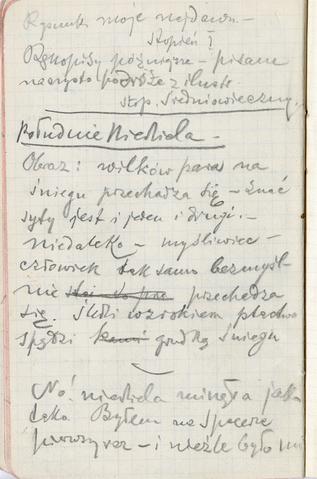 Rysunki moje niedawne –
Stopień I
Rękopisy późniejsze – pisane
na czysto podróże z ilustr.
stop. średniowieczny.
Południe Niedziela –
Obraz: wilków para na
śniegu przechadza się – znać
syty jest i jeden i drugi. –
niedaleko – myśliwiec –
człowiek tak samo bezmyśl
nie przechadza
się. śledzi wzrokiem ptactwo
spędzi grudką śniegu
No! niedziela minęła jak
taka Byłem na spacerze
pierwszy raz – i nieźle było mi